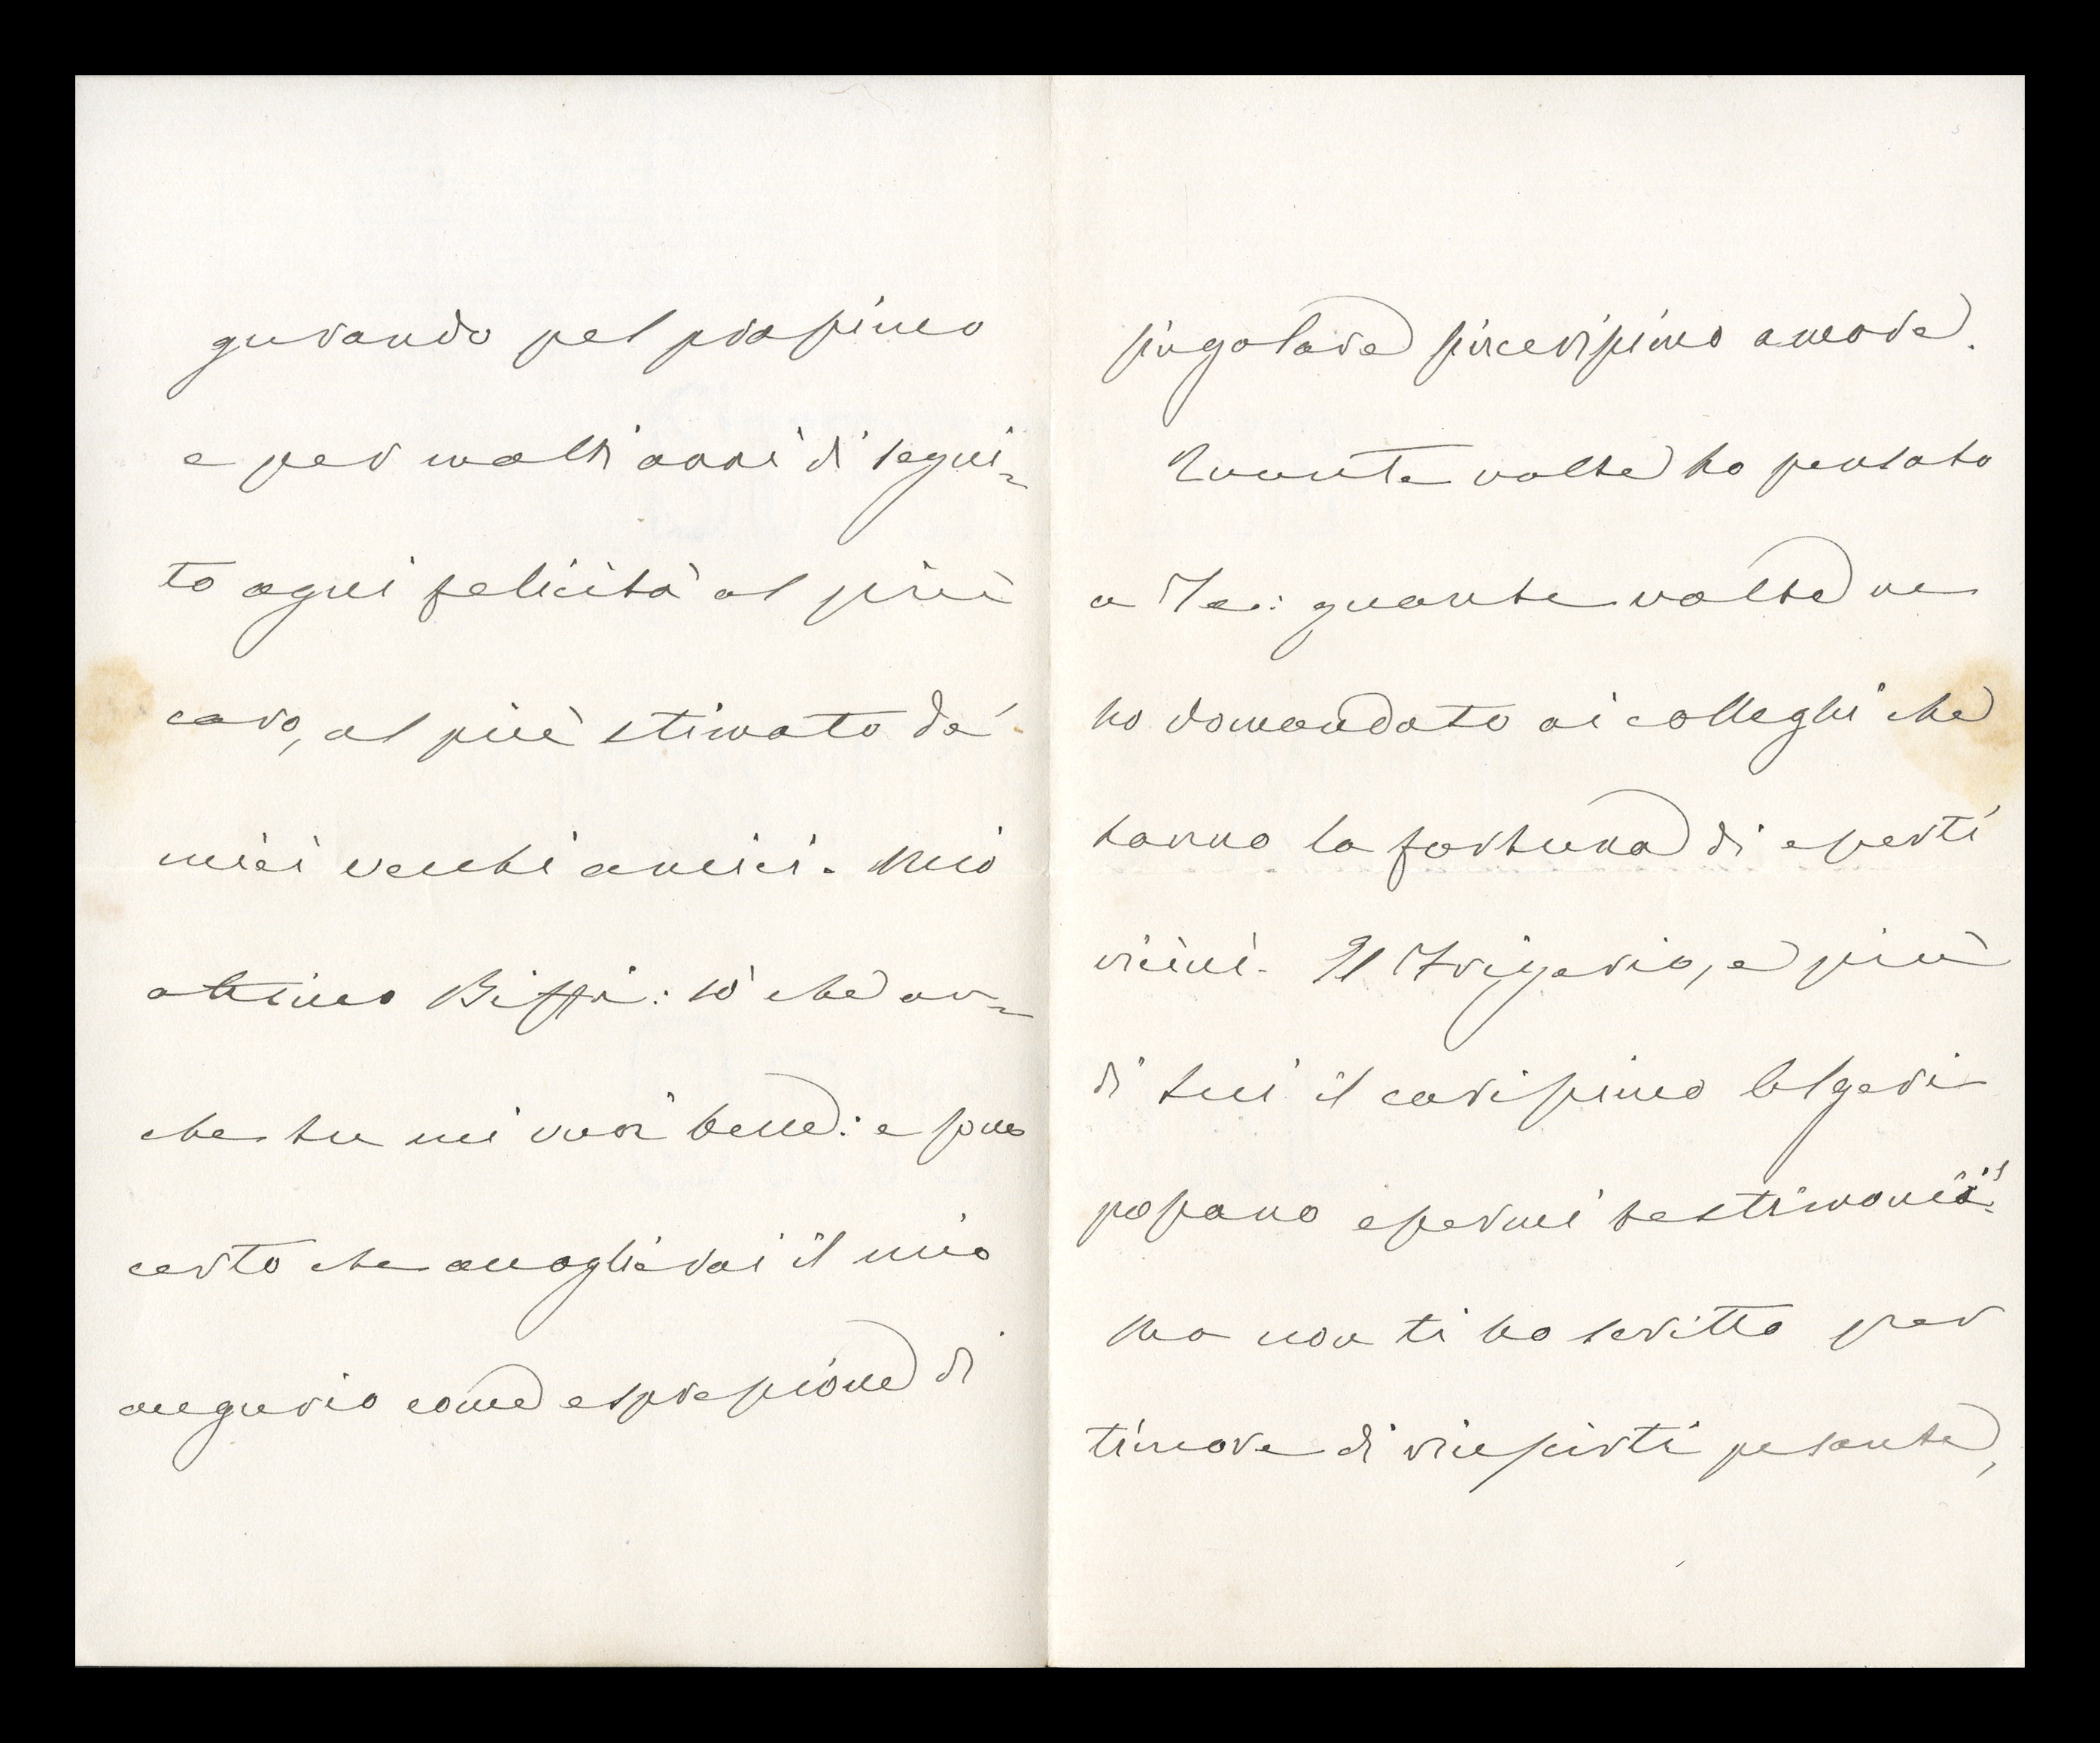 gurando pel prossimo
e per molti anni di segui-
to ogni felicità al più
caro, al più stimato de'
miei vecchi amici. Mio
ottimo Biffi: so che an-
che tu mi vuoi bene: e sono
certo che accoglierai il mio
augurio come espressione di
singolare sincerissimo amore.
Quante volte ho pensato
a Te: quante volte ne
ho domandato ai colleghi che
hanno la fortuna di esserti
vicini. Il Trigerio, e più
di lui il carissimo Algeri
possano essermi testimonii.
Ma non ti ho scritto per
timore di riuscirti pesante,